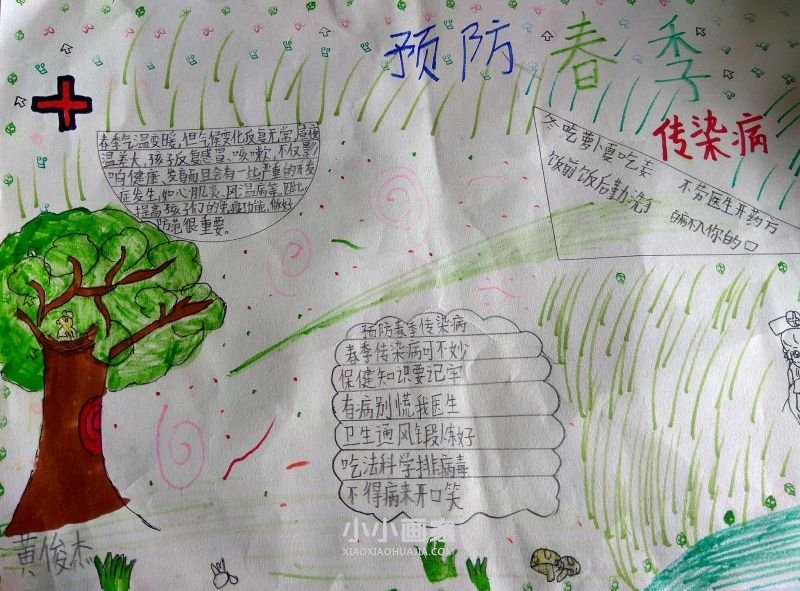 预防春季
传染病
春季气温变暖,但气候变化反复无常,昼夜
温差大,孩子反复感冒、咳嗽,不仅影
响健康、发育而且会有一些严重的并发
症发生,如心肌炎、风湿病等,因此
提高孩子们的免疫功能,做好
防范很重要。
冬吃萝卜夏吃姜
不劳医生开药方
饭前饭后勤洗手
病入你的口
预防春季传染病
春季传染病可不妙
保健知识要记牢
有病别慌我医生
卫生通风锻炼好
吃法科学排病毒
不得病来开口笑
黄俊杰
小小画家
XIAOXIAOHUAJIA.COM